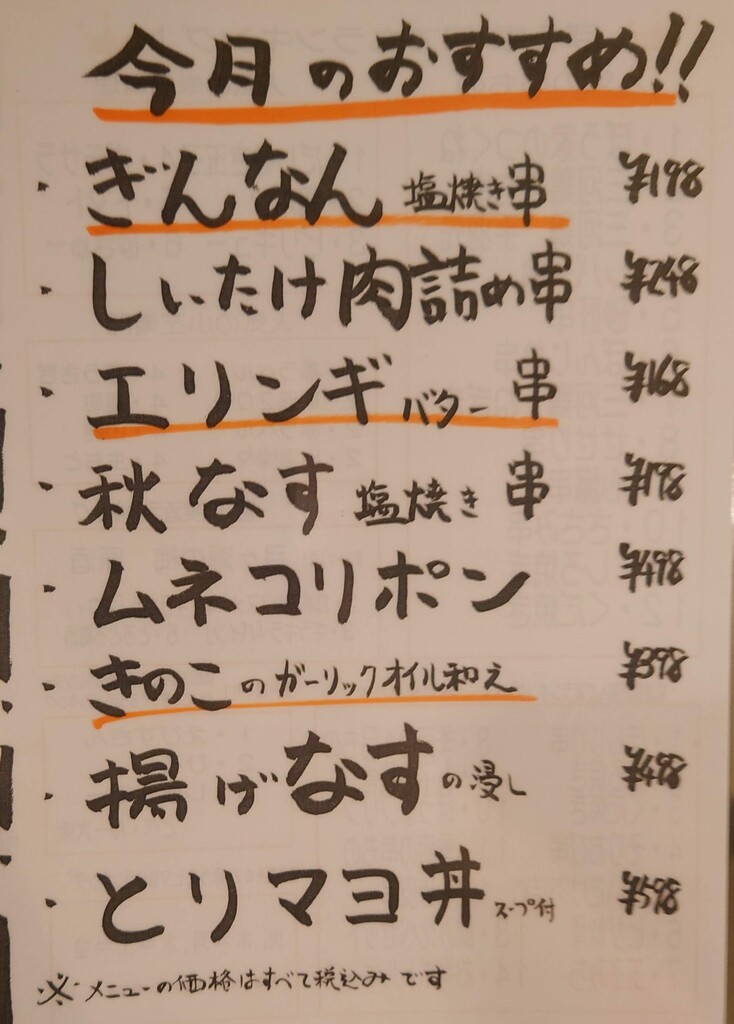 今月のおすすめ!!
・ぎんなん 塩焼き串 ¥198
・しいたけ肉詰め串 ¥248
・エリンギバター串 ¥168
・秋なす 塩焼き串 ¥198
・ムネコリポン ¥498
・きのこのガーリックオイル和え ¥398
・揚げなすの浸し ¥448
・とりマヨ丼 スープ付 ¥598
※メニューの価格はすべて税込みです